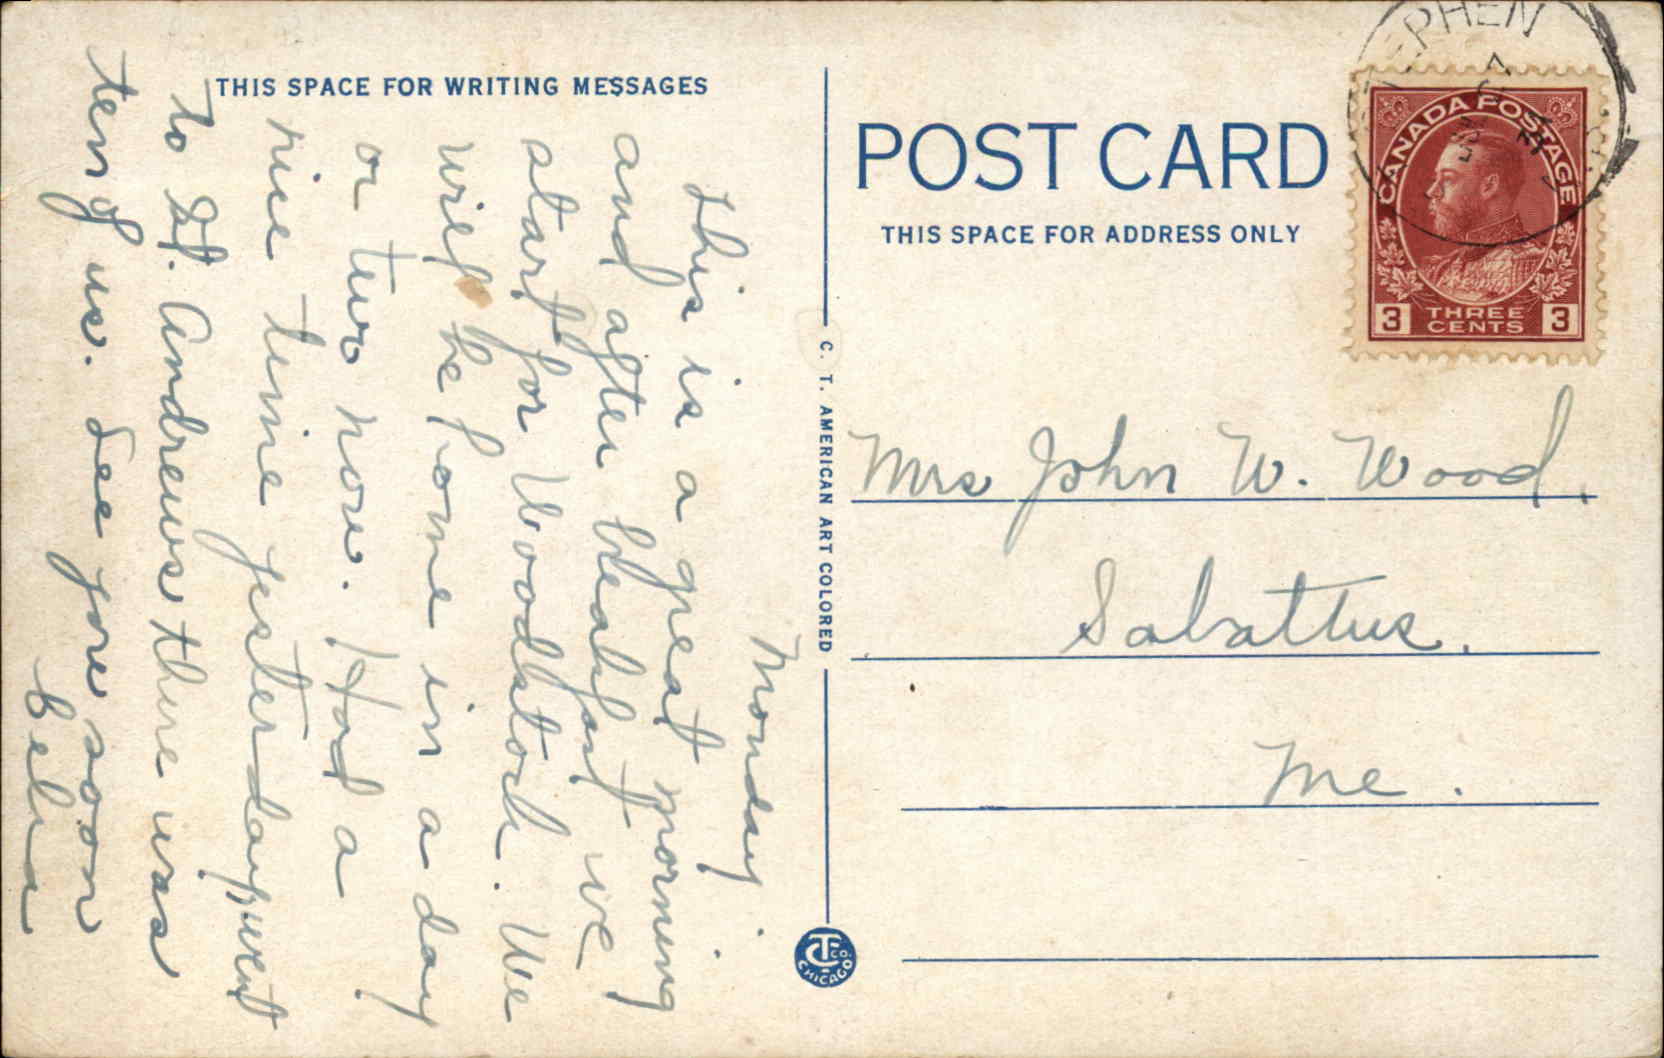 THIS SPACE FOR WRITING MESSAGES
Monday.
This is a great morning.
and after breakfast we
start for Woodstock. We
will be home in a day
or two now. Had a
nice time yesterday, went
to St. Andrews there was
ten of us. See you soon
POST CARD
THIS SPACE FOR ADDRESS ONLY
C. T. AMERICAN ART COLORED
CT CO. CHICAGO
EPHEN
CANADA POSTAGE
3 THREE CENTS 3
Mrs John W. Wood.
Sabattus.
Me.